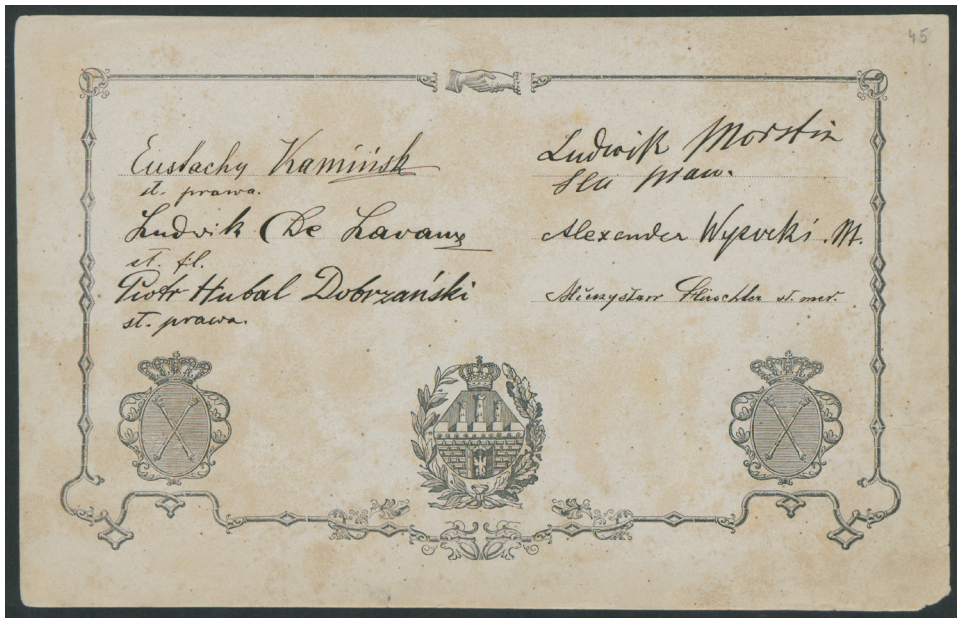 45
Eustachy Kamińsk
st. prawa.
Ludwik De Lavaux
st. fil.
Piotr Hubal Dobrzański
st. prawa.
Ludwik Morstin
słu praw.
Alexander Wysocki
Mieczysław st. med.